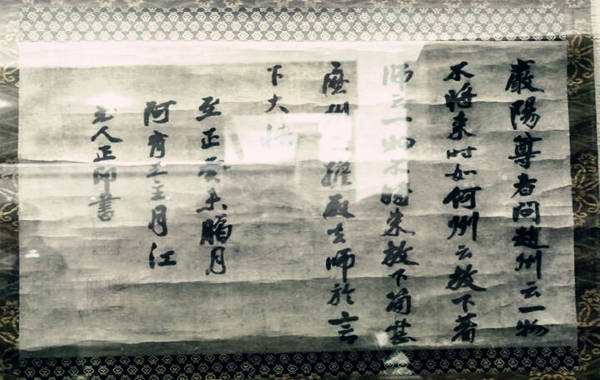 巖陽尊者問趙州云一物
不將来时如何州云放下著
師云一物不將来放下箇甚
麼州担取去師於言
下大悟
至正癸未臈月
阿育王主月江
老人正印書